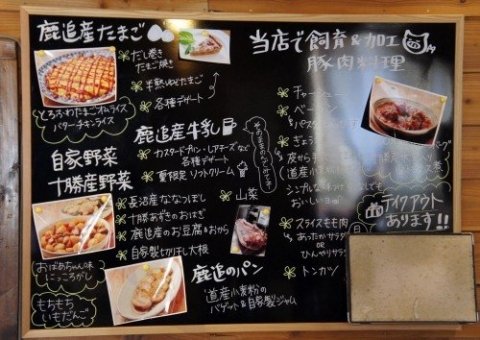 鹿追産たまご
だし巻き
たまご焼き
半熟ゆでたまご
各種デザート
とろふわたまごオムライス
バターチキンライス
鹿追産牛乳
カスタードプリン・レアチーズなど
各種デザート
夏限定 ソフトクリーム
自家野菜
十勝産野菜
長沼産ななつぼし
十勝あずきのおはぎ
鹿追産のお豆腐&おから
自家製切り干し大根
山菜
おばあちゃん味
にっころがし
もちもち
いもだんご
鹿追のパン
道産小麦粉の
バゲット&自家製ジャム
当店で飼育&加工
豚肉料理
チャーシュー
ベーコン
パスタ
ぎょう
皮から手
道産小麦
シンプルな味
おいしい自由
スライスもも肉
あったかサラダ
OR
ひんやりサラダ
トンカツ
テイクアウト
あります!!